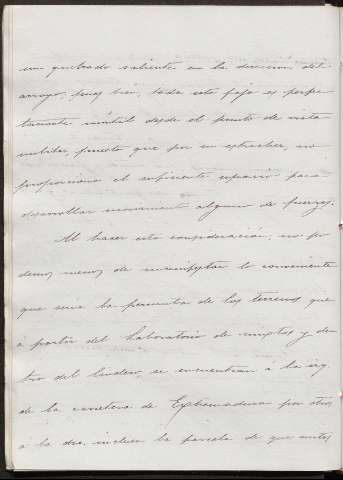 un quebrado saliente en la dirección del
arroyo, pues bien, toda esta faja es perfec
tamente inútil desde el punto de vista
militar, puesto que por su estrechez, no
proporciona el suficiente espacio para
desarrollar movimiento alguno de fuerzas.
Al hacer esta consideración, no po
demos menos de manifestar lo conveniente
que sería la permuta de los terrenos que
á partir del Laboratorio de mixtos y den
tro del lindero, se encuentran á la izq.
de la carretera de Extremadura por otros
á la dra. incluso la parcela de que antes